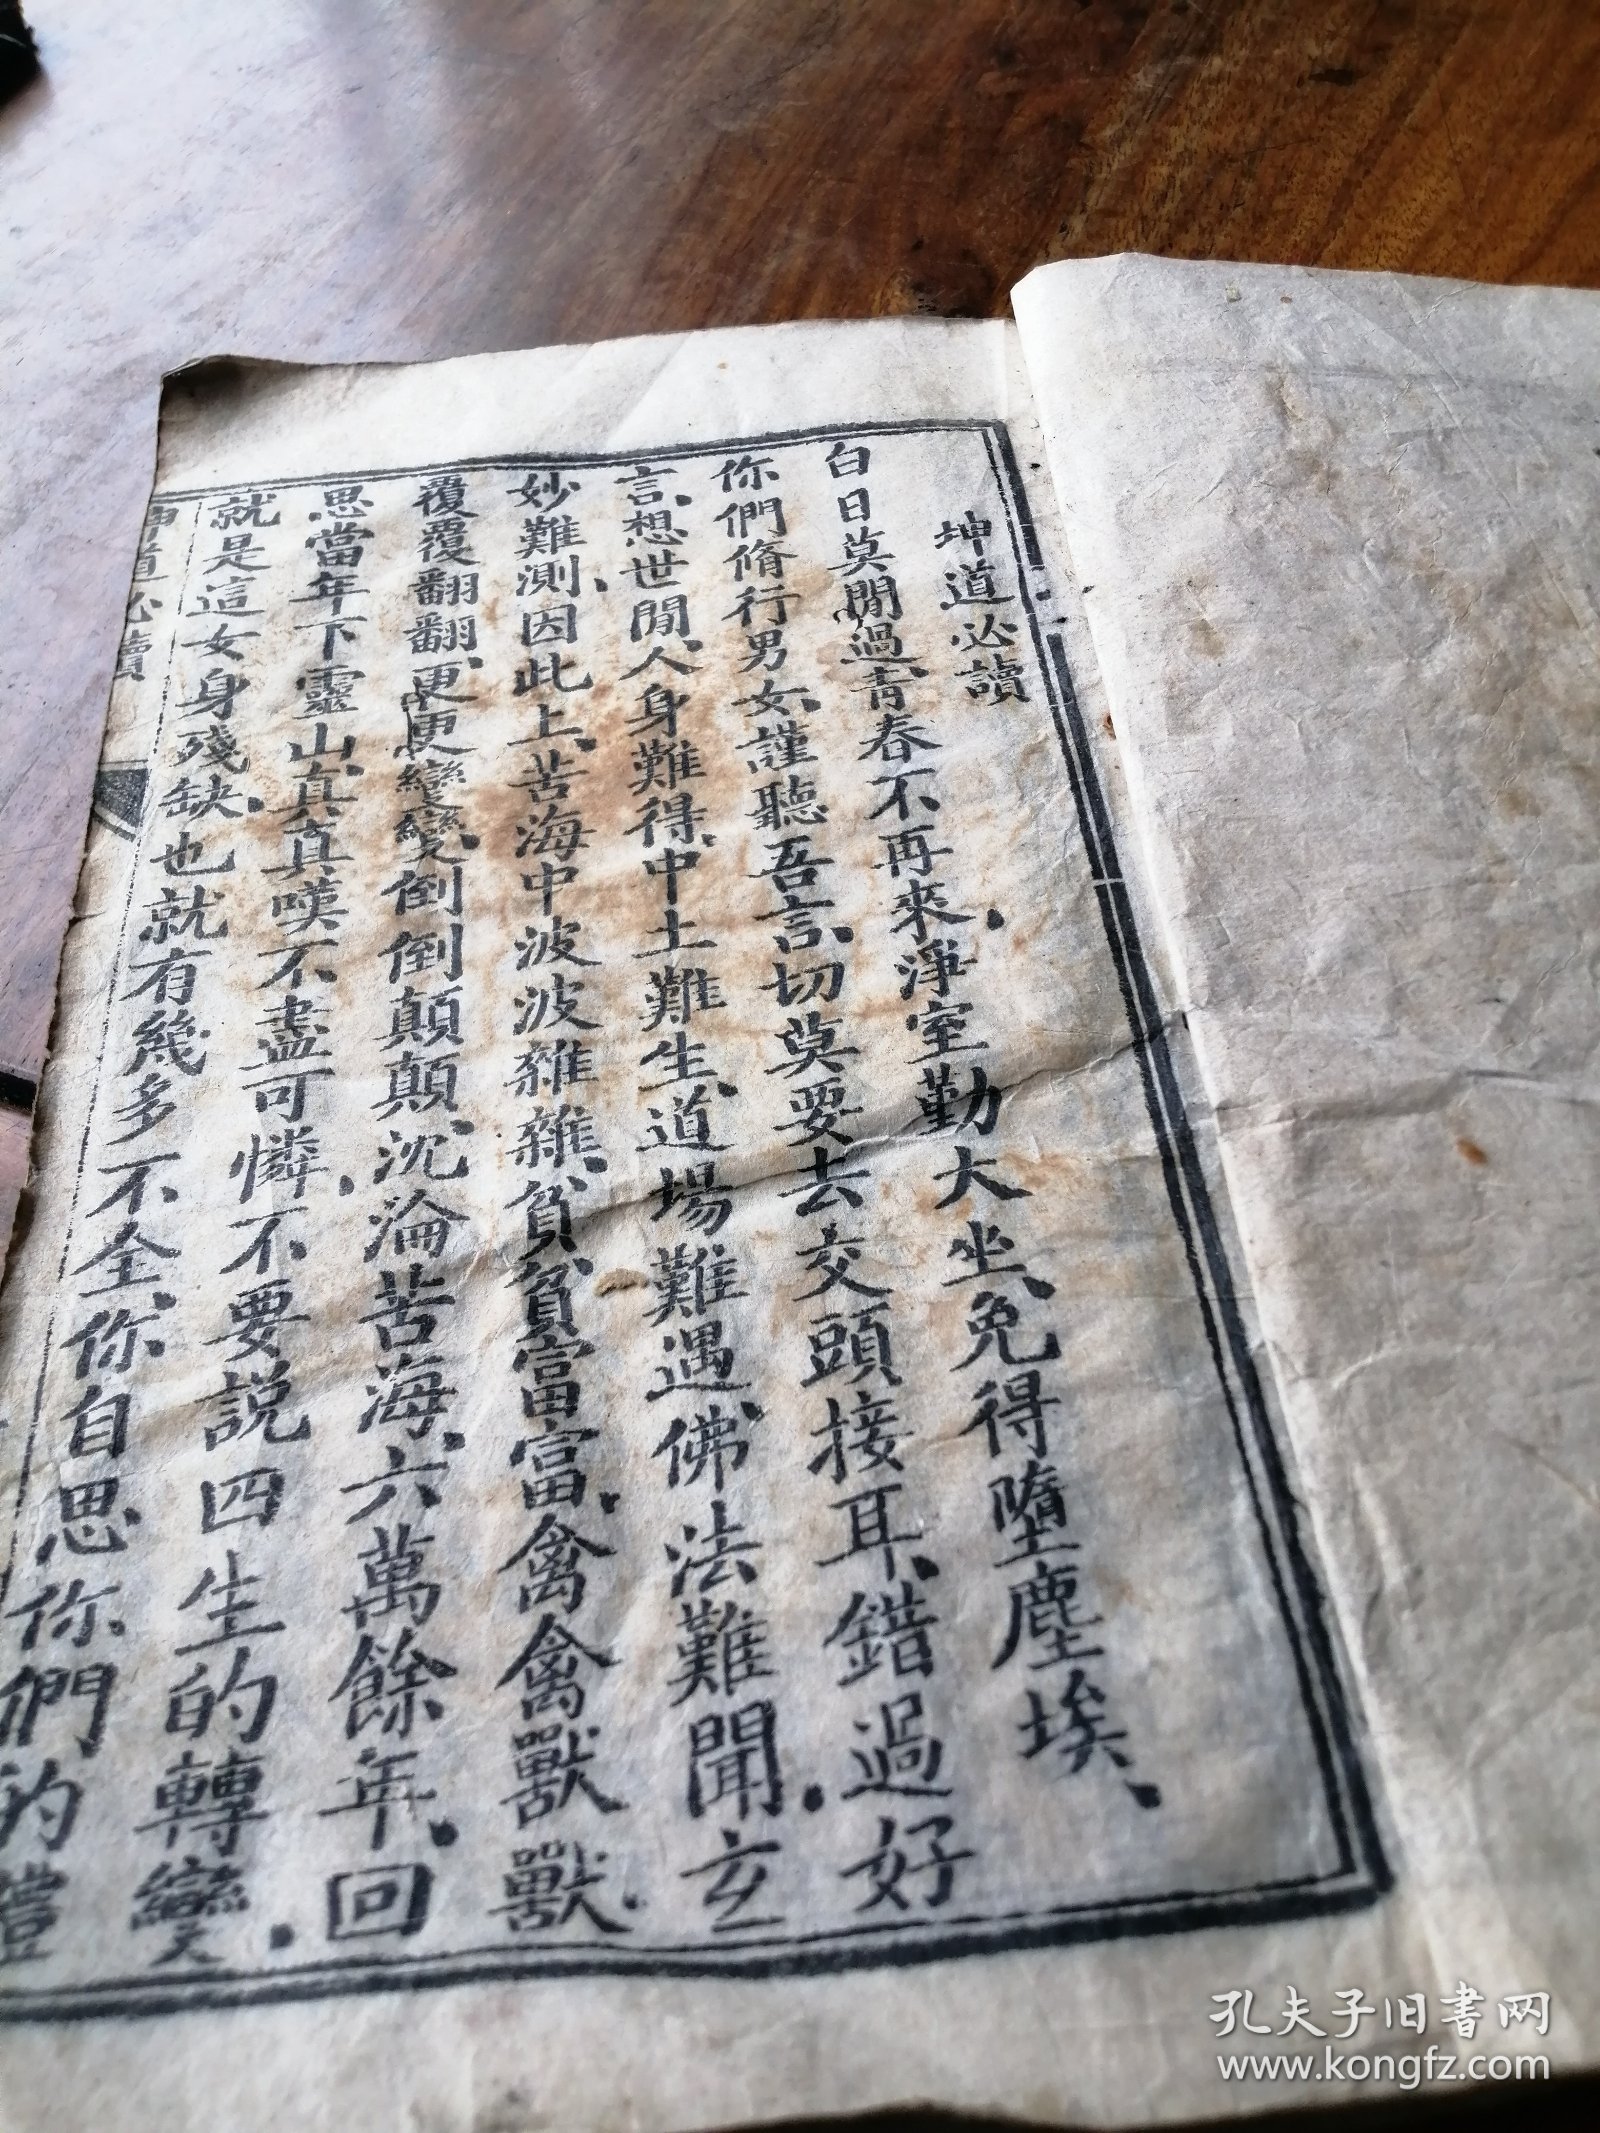 坤道必讀
白日莫閒過、青春不再來、淨室勤大坐、免得墮塵埃、
你們脩行男女、謹聽吾言、切莫要去交頭接耳、錯過好
言、想世間、人身難得、中土難生、道場難遇、佛法難聞、玄
妙難測、因此上、苦海中波波雜雜、貧、貧富富、禽禽獸獸、
覆覆翻翻、更更變變、倒倒顛顛、沈淪苦海、六萬餘年、回
思當年下靈山、真真嘆不盡可憐、不要説四生的轉變、
就是這女身殘缺、也就有幾多不全、你自思你們的體
坤道必讀
孔夫子旧书网
www.kongfz.com